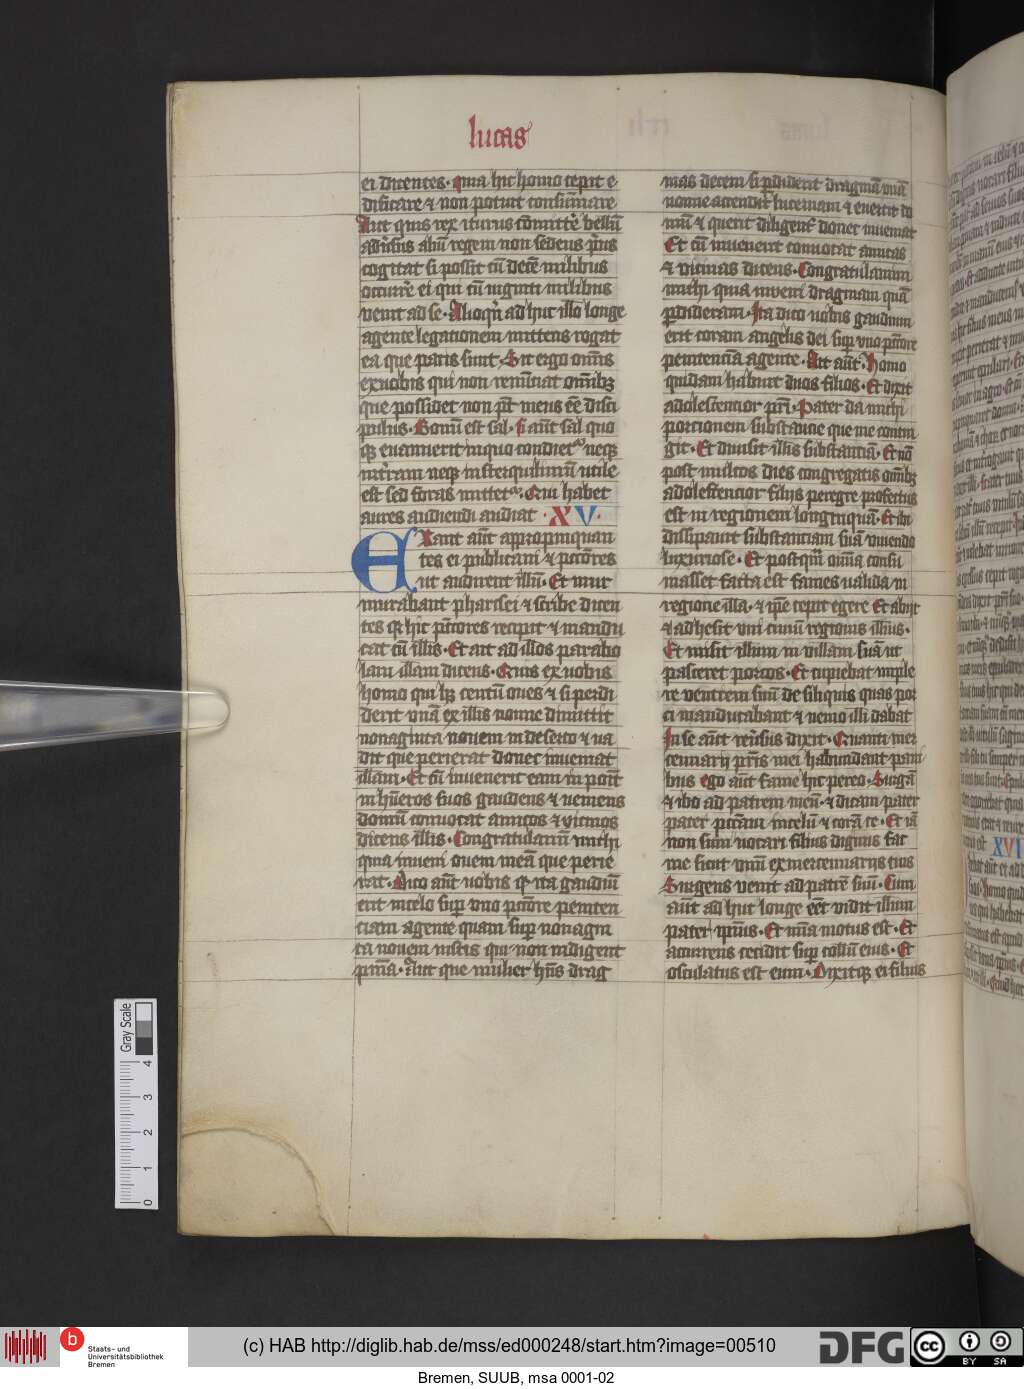 lucas
ei dicentes. quia hic homo cepit e
dificare ⁊ non potuit consũmare
Aut quis rex iturus cõmittẽ bellũ
adũsus aliũ regem non sedens p̃us
cogitat si possit cũ decẽ milibus
occurrẽ ei qui cũ uiginti milibus
venit ad se. Alioqñ ad huc illo longe
agente legationem mittens rogat
ea que pacis sunt. Sic ergo om̃is
ex uobis qui non renũciat om̃ibꝫ
que possidet non põt meus eẽ disci
pulus. Bonũ est sal. si aũt sal quo
qꝫ euanuerit in quo condiet᷑ neqꝫ
in t̃ram neqꝫ in sterquiliniũ utile
est sed foras mittet᷑. Qui habet
aures audiendi audiat. XV.
Erant aũt appropinquan
tes ei publicani ⁊ pctõres
ut audirent illũ. Et mur
murabant pharisei ⁊ scribe dicen
tes qꝛ hic pctõres recipit ⁊ mandu
cat cũ illis. Et ait ad illos parabo
lam istam dicens. Quis ex uobis
homo qui hꝫ centũ oues ⁊ si perdi
derit unã ex illis nonne dimittit
nonaginta nouem in deserto ⁊ ua
dit que perierat donec inueniat
illam. Et cũ inuenerit eam inponit
in hũeros suos gaudens ⁊ ueniens
domũ conuocat amicos ⁊ vicinos
dicens illis. Congratulamĩ michi
quia inueni ouem meã que perie
rat. Dico aũt uobis qꝛ ita gaudiũ
erit in celo sup̱ uno pctõre peniten
ciam agente quam sup̱ nonagin
ta nouem iustis qui non indigent
pñia. Aut que mulier hñs drag
mas decem si p̱diderit dragmã unã
nonne accendit lucernam ⁊ euertit do
mũ ⁊ querit diligenť donec inueniat
Et cũ inuenerit conuocat amicas
⁊ vicinas dicens. Congratulamini
michi quia inveni dragmam quã
p̱dideram. Ita dico uobis gaudium
erit coram angelis dei sup̱ uno pctõre
penitenciã agente. Ait aũt. Homo
quidam habuit duos filios. Et dixit
adolescencior pr̃i. Pater da michi
porcionem substancie que me contin
git. Et diuisit illis substanciã. Et nõ
post multos dies congregatis om̃ibꝫ
adolescencior filius peregre profectus
est in regionem longinquã. Et ibi
dissipauit substantiam suã viuendo
luxuriose. Et postqm̃ omĩa consu
masset facta est fames ualida in
regione illa. ⁊ ip̃e cepit egere Et abijt
⁊ adhesit vni ciuiũ regionis illius.
Et misit illum in villam suã ut
pasceret porcos. Et cupiebat imple
re ventrem suũ de siliquis quas por
ci manducabant ⁊ nemo illi dabat
In se aũt reũsus dixit. Quanti mer
cennarij pr̃is mei habundant pani
bus ego aũt fame hic pereo. Surgã
⁊ ibo ad patrem meũ. ⁊ dicam pater
pater peccaui in celũ ⁊ corã te. Et iã
non sum uocari filius dignus fac
me sicut unũ ex mercennarijs tuis
Surgens venit ad patrẽ suũ. Cum
aũt ad huc longe eẽt vidit illum
pater ipius. Et mĩa motus est. Et
accurrens cecidit sup̱ collũ eius. Et
osculatus est eum. Dixitqꝫ ei filius
XVI
Gray Scale
4
3
2
1
0
b
Staats- und
Universitätsbibliothek
Bremen
(c) HAB http://diglib.hab.de/mss/ed000248/start.htm?image=00510
DFG
cc
BY
SA
Bremen, SUUB, msa 0001-02